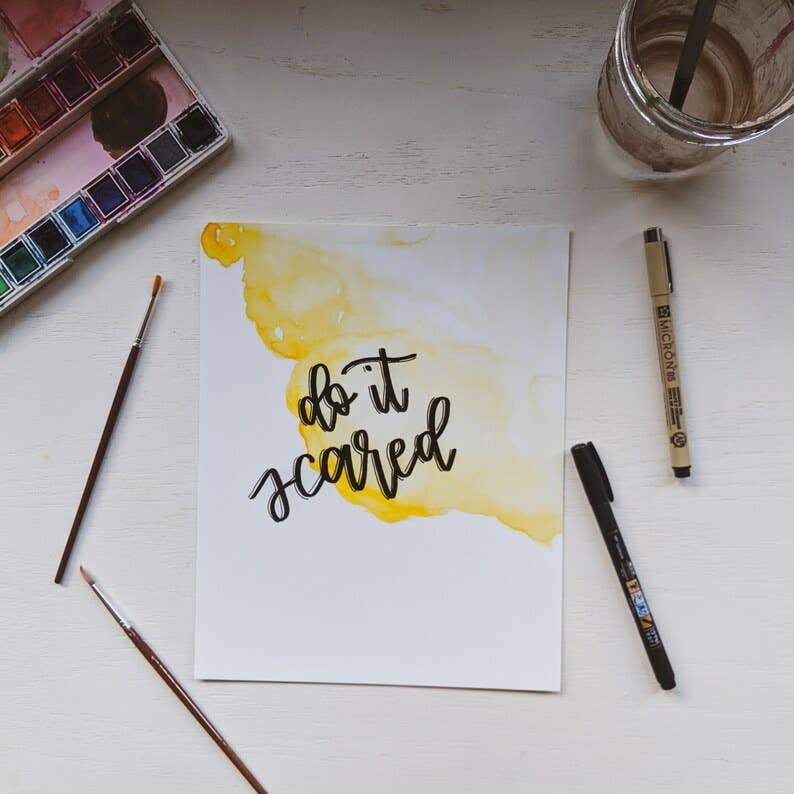 do it
scared
MICRON 05